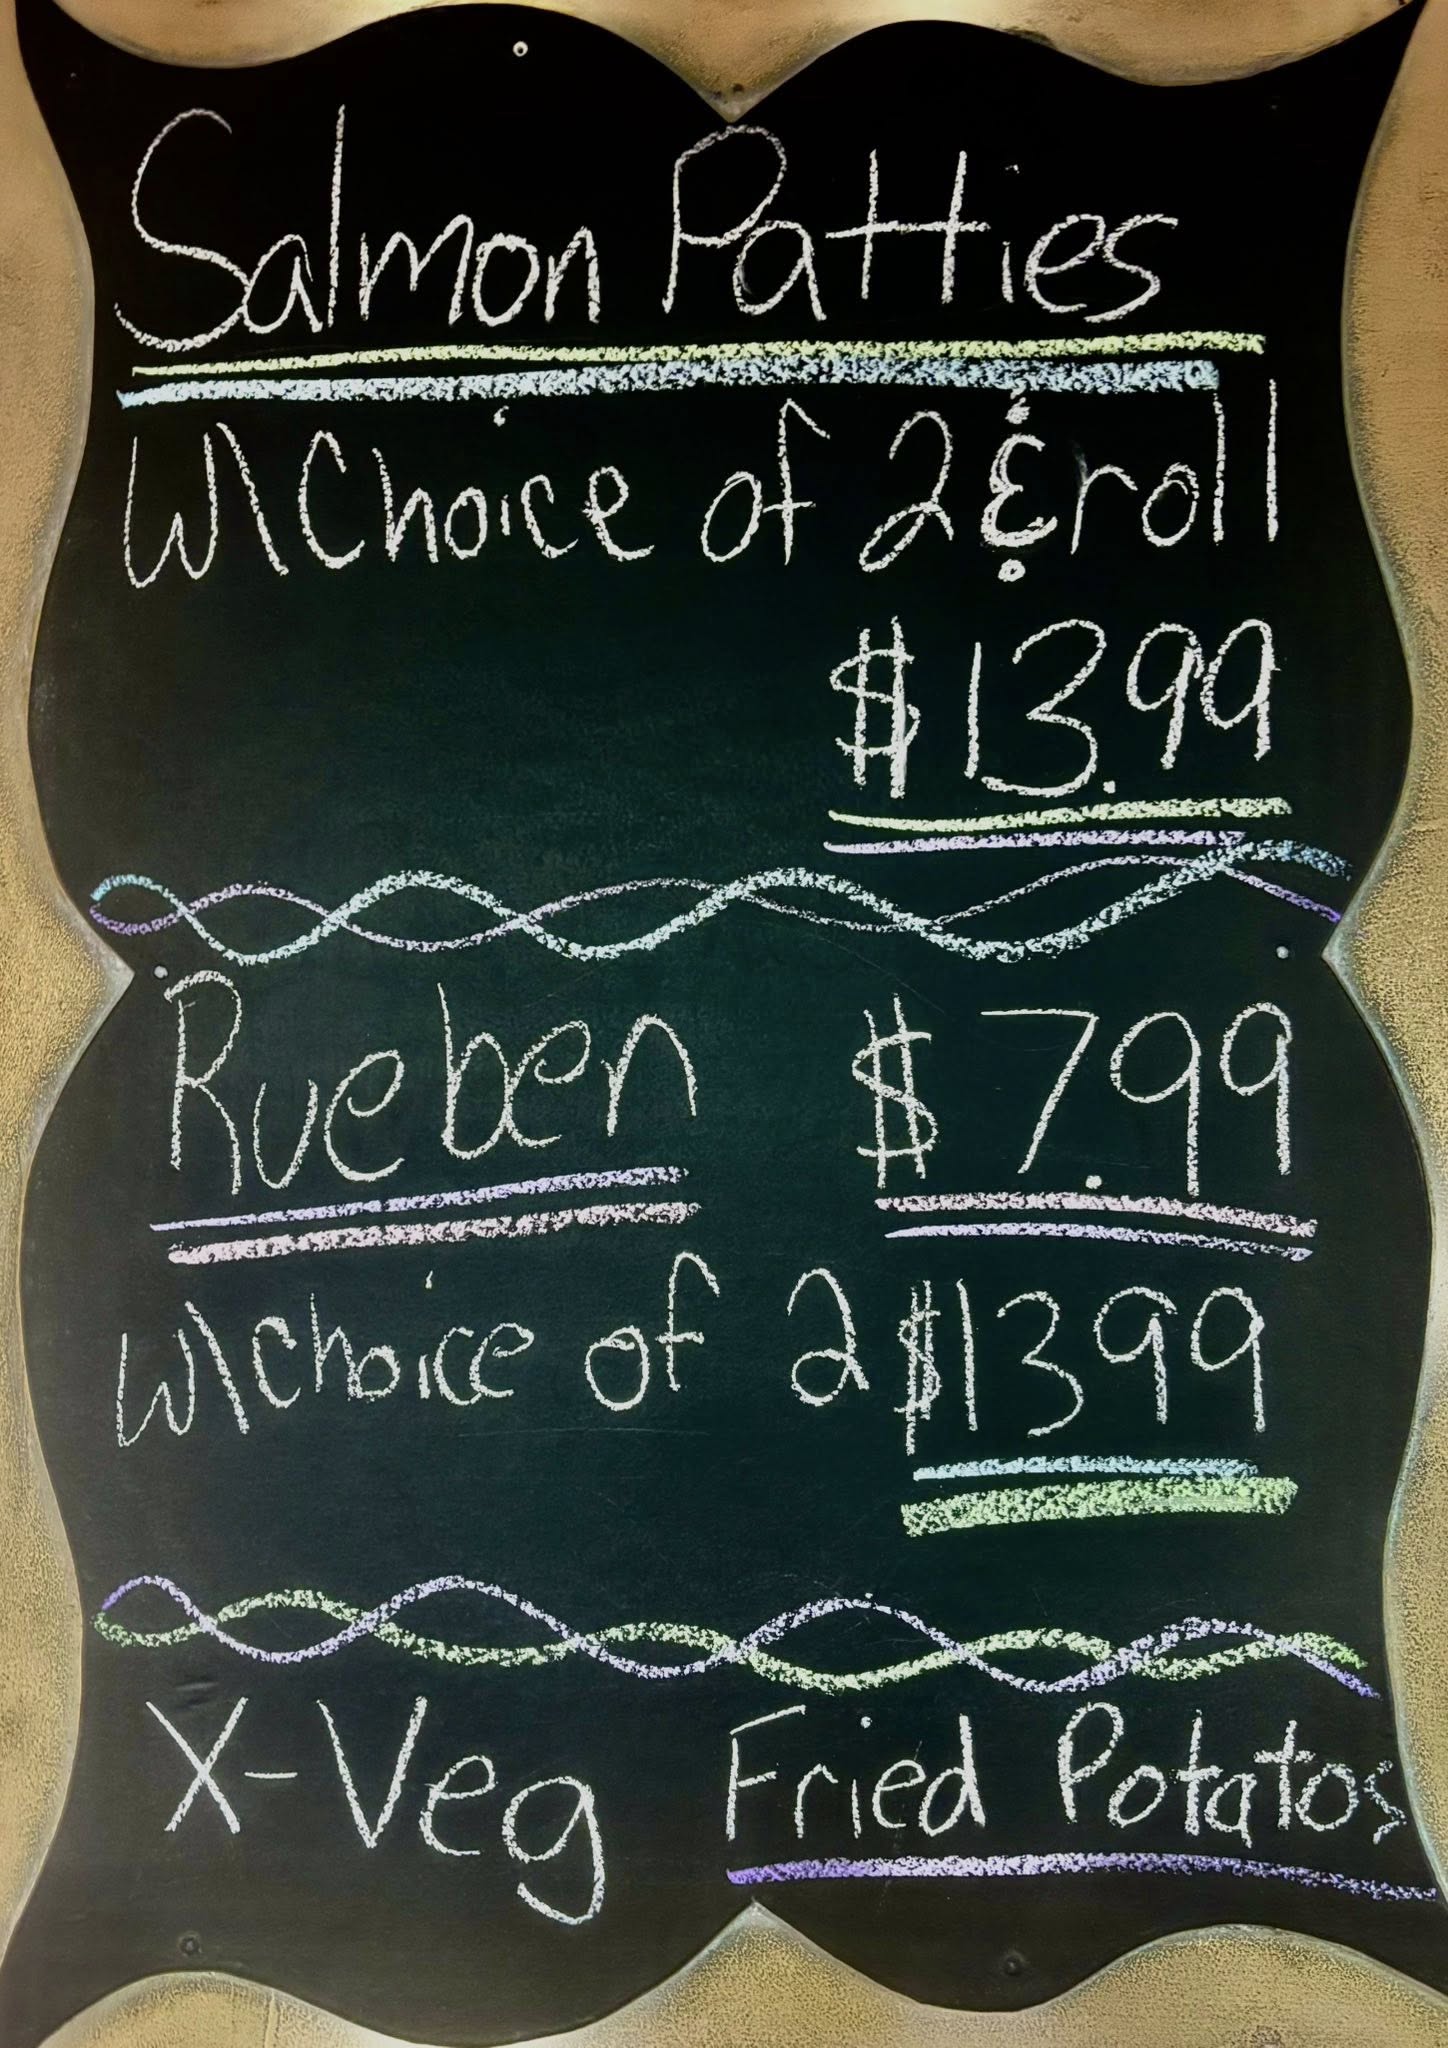 Salmon Patties
W\Choice of 2 & roll
$13.99
Rueben $7.99
W\Choice of 2 $1399
X-Veg Fried Potatos